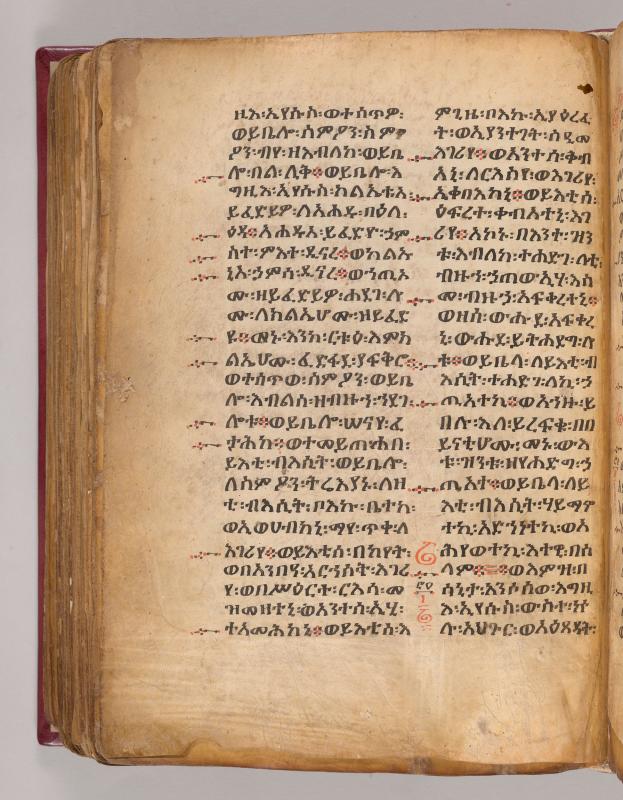 ዚእ፡ኢየሱስ፡ወተሰጥዎ፡
ወይቤሎ፡ስምዖን፡ስምዖ
ዖን፡ብየ፡ዘእብለከ፡ወይቤ
ሎ፡በል፡ሊቅ፨ወይቤሎ፡እ
ግዚእ፡ኢየሱስ፡ክልኤቱ፡እ
ይፈድይዎ፡ለአሐዱ፡በዓለ፡
ዕዳ፨አሐዱ፡ይፈድዮ፡ኃም
ስተ፡ምእተ፡ዲናረ፨ወካልኡ
ኒ፡ኃምሳ፡ዲናረ፨ወኀጢኦ
ሙ፡ዘይፈድይዎ፡ሐደገ፡ሎ
ሙ፡ለክልኤሆሙ፡ዘይፈድ
ዩ፨መኑ፡እንከ፡ርቱዕ፡እምክ
ልኤሆሙ፡ፈድፋደ፡ያፍቅሮ፨
ወተሰጥወ፡ስምዖን፡ወይቤ
ሎ፡እብለስ፡ዘብዙኅ፡ኀደገ፡
ሎቱ፨ወይቤሎ፡ሠናየ፡ፈ
ታሕከ፨ወተመይጠ፡ሐበ፡
ይእቲ፡ብእሲት፡ወይቤሎ፡
ለስምዖን፡ትሬእያኑ፡ለዛ
ቲ፡ብእሲት፡ቦእኩ፡ቤተከ፡
ወኢወሀብከኒ፡ማየ፡ጥቀ፡ለ
እገሪየ፨ወይእቲሰ፡በከየት፡
ወበአንብዓ፡አርኀሰት፡እገሪ
የ፡ወበሥዕርተ፡ርእሳ፡መ
ዝመዘተኒ፡ወአንተሰ፡ኢሂ፡
ተአመሕከኒ፨ወይእቲሰ፡እ
ምጊዜ፡ቦእኩ፡ኢያዕረፈ
ት፡ወኢያንተገት፡ስዒመ
እገሪየ፨ወአንተሰ፡ቅብ
አኒ፡ለርእስየ፡ወእገሪየ፡
ኢቀባእከኒ፨ወይእቲሰ፡
ዕፍረተ፡ቀብአተኒ፡እገ
ሪየ፨አኮኑ፡በእንተ፡ዝን
ቱ፡እብለከ፡ተሐድገ፡ላቲ፡
ብዙኅ፡ኃጢውኢሃ፡እስ
መ፡ብዙኃ፡አፍቀረተኒ፨
ወዘሰ፡ውሑደ፡አፍቀረ
ኒ፡ውሑደ፡ይትሐድግ፡ሎ
ቱ፨ወይቤላ፡ለይእቲ፡ብ
እሲት፡ተሐድገ፡ለኪ፡ኃ
ጢአተኪ፨ወአኀዙ፡ይ
በሉ፡እለ፡ይረፍቁ፡በበ
ይናቲሆሙ፡መኑ፡ውእ
ቱ፡ዝንቱ፡ዘየሐድግ፡ኃ
ጢአተ፨ወይቤላ፡ለይ
እቲ፡ብእሲት፡ሃይማኖ
ተኪ፡አድኀነተኪ፡ወአ
ሕየወተኪ፡እተዊ፡በሰ
ላም፨ወእምዝ፡በ
ሳኒት፡አንሶሰወ፡እግዚ
እ፡ኢየሱስ፡ውስተ፡ኵ
ሉ፡አህጉር፡ወአዕጻዳት፡